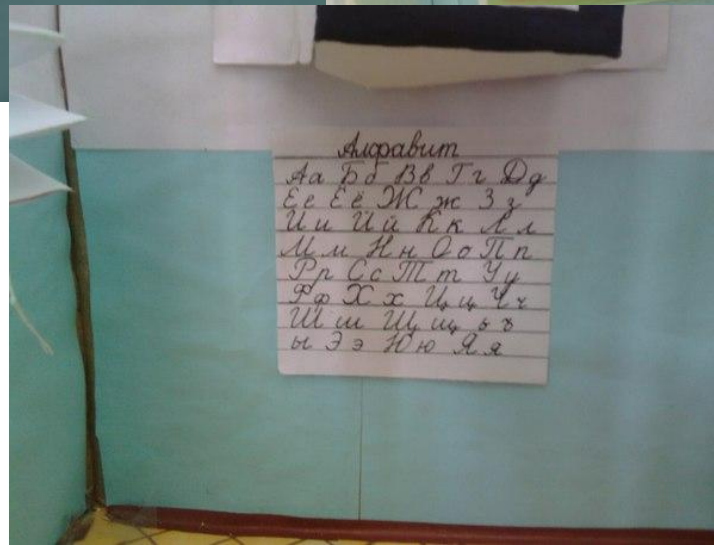 Алфавит
Аа Бб Вв Гг Дд
Ее Ёё Ж ж З з
И и Й й К к Л л
М м Н н О о П п
Р р С с Т т У у
Ф ф Х х Ц ц Ч ч
Ш ш Щ щ ь ъ
ы Э э Ю ю Я я